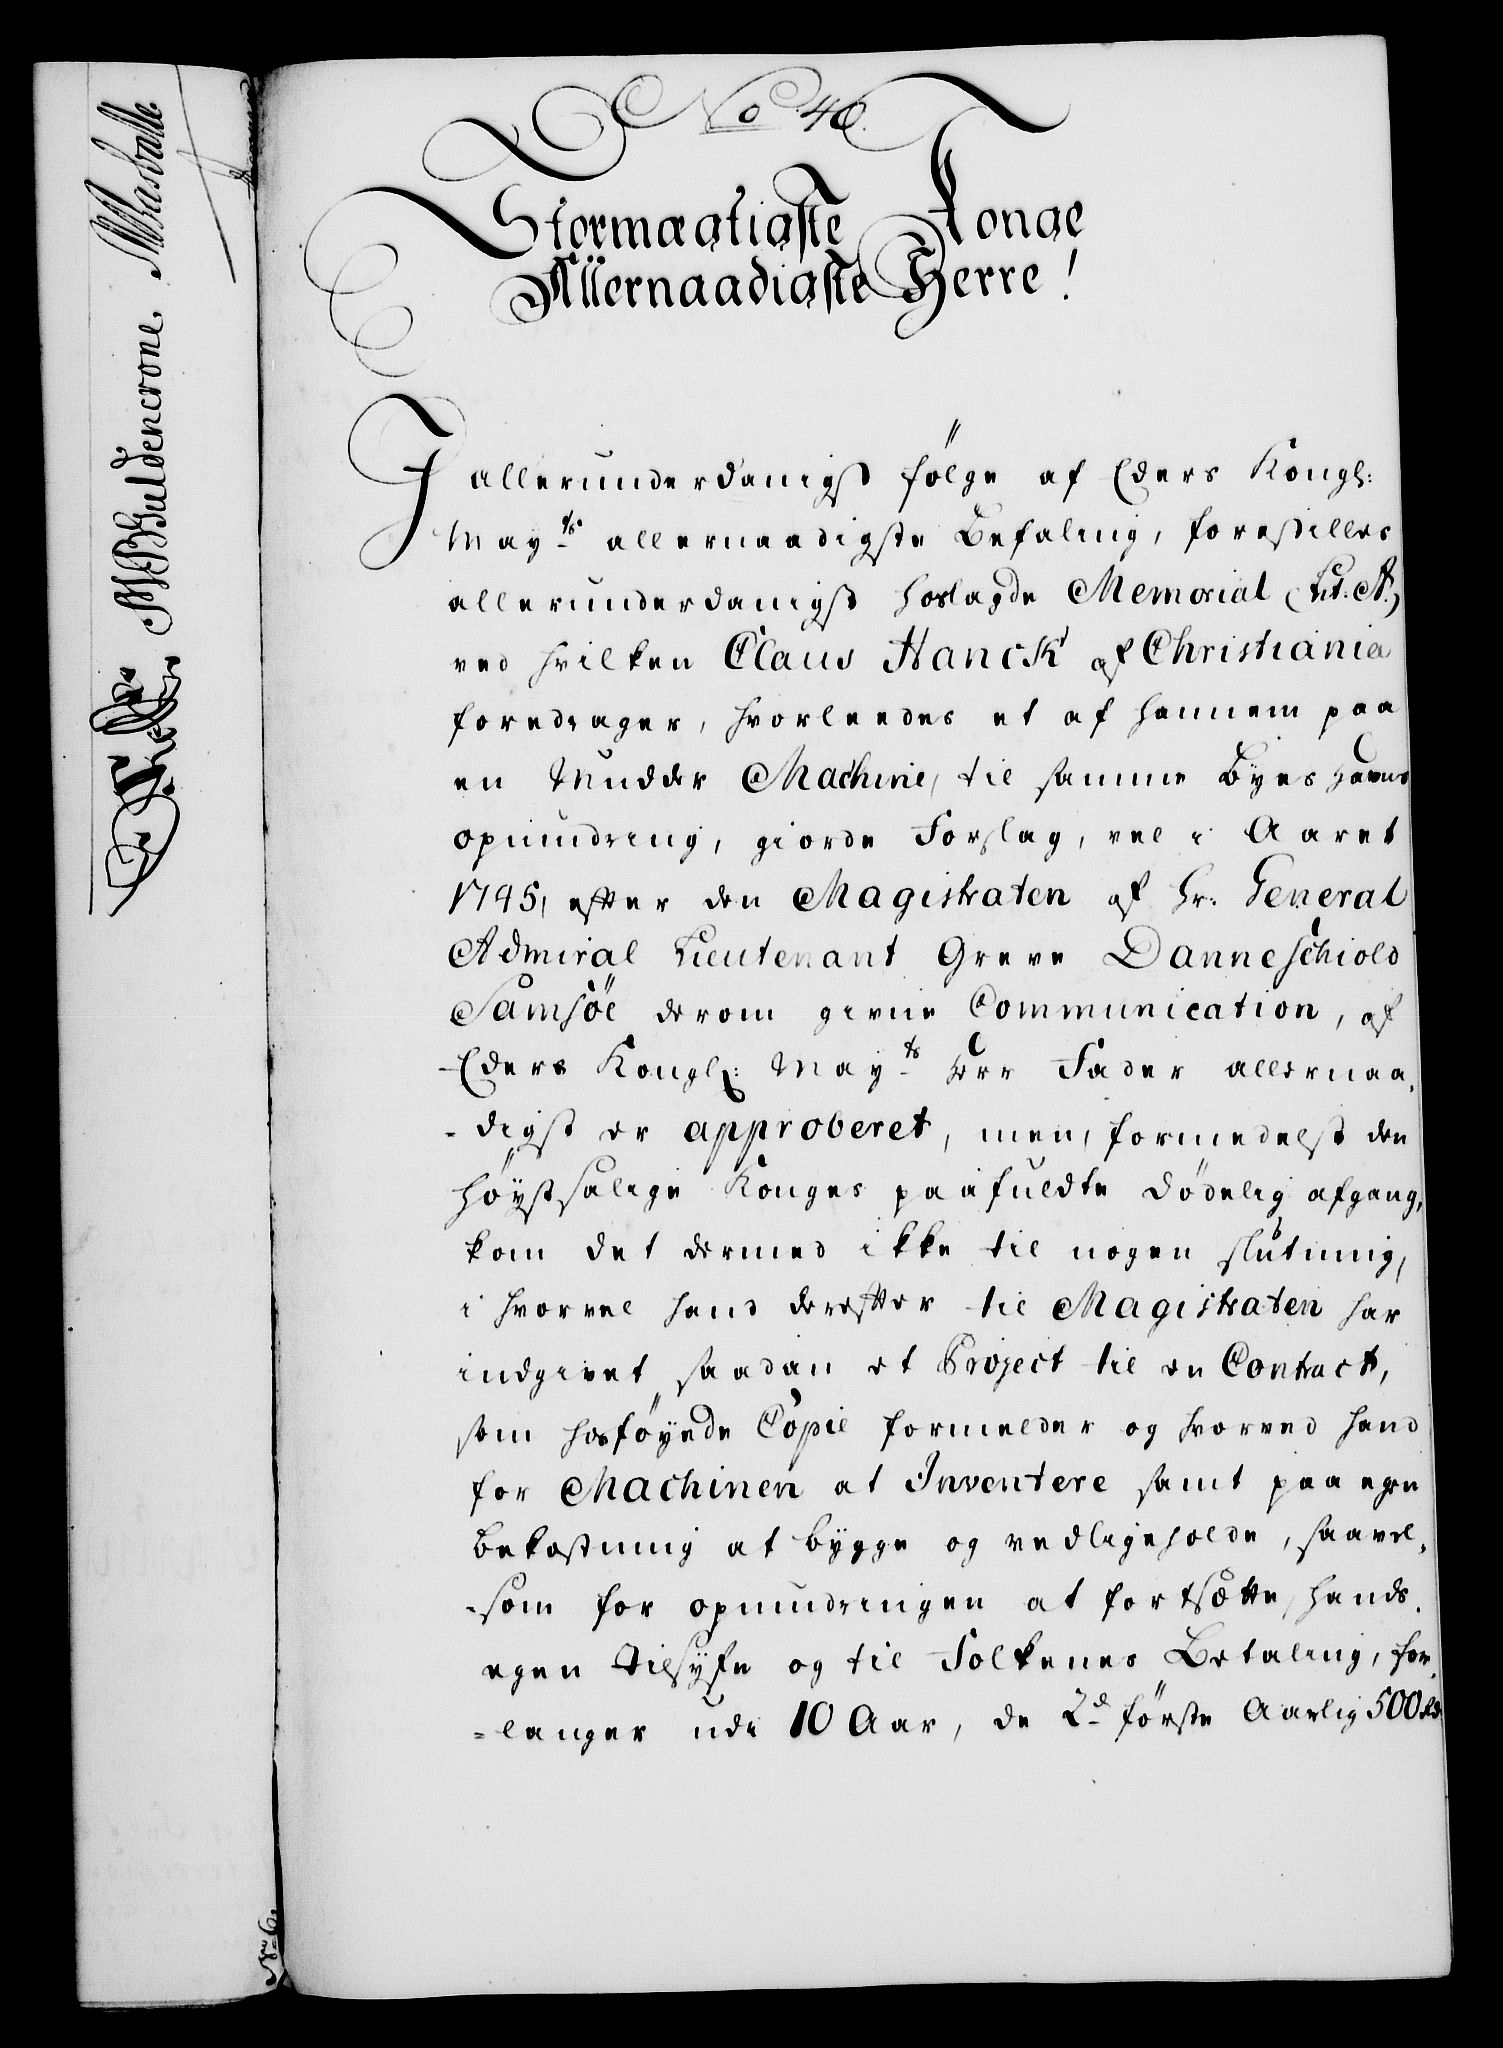 No. 40.
Stormægtigste Konge
Allernaadigste Herre!
I allerunderdanigst følge af Eders Kongl:
May.ts allernaadigste Befaling, forestilles
allerunderdanigst hoslagde Memorial (Lit: A.)
ved hvilken Claus Hanck af Christiania
foredrager, hvorleedes et af hannem paa
en Mudder Machine, til samme Byes Havns
opmudring, giorde Forslag, vel i Aaret
1745, efter den Magistraten af Hr. General
Admiral Lieutenant Greve Danneschiold
Samsöe derom givne Communication, af
Eders Kongl: May.ts Herr Fader allernaa-
-digst er approberet, men, formedelst den
höystsalige Konges paafuldte Dödelig afgang,
kom det dermed ikke til nogen slutning,
i hvorvel hand derefter til Magistraten har
indgivet saadan et Project til en Contract,
som hosföyede Copie formelder og hvorved hand
for Machinen at Inventere samt paa egen
Bekostning at bygge og vedligeholde, saavel-
-som for opmudringen at fortsætte, hands
egen Tilsyn og til Folkenes Betaling, for-
-langer udi 10 Aar, de 2de förste Aarlig 500 rd
M B Guldencrone.
No 6.